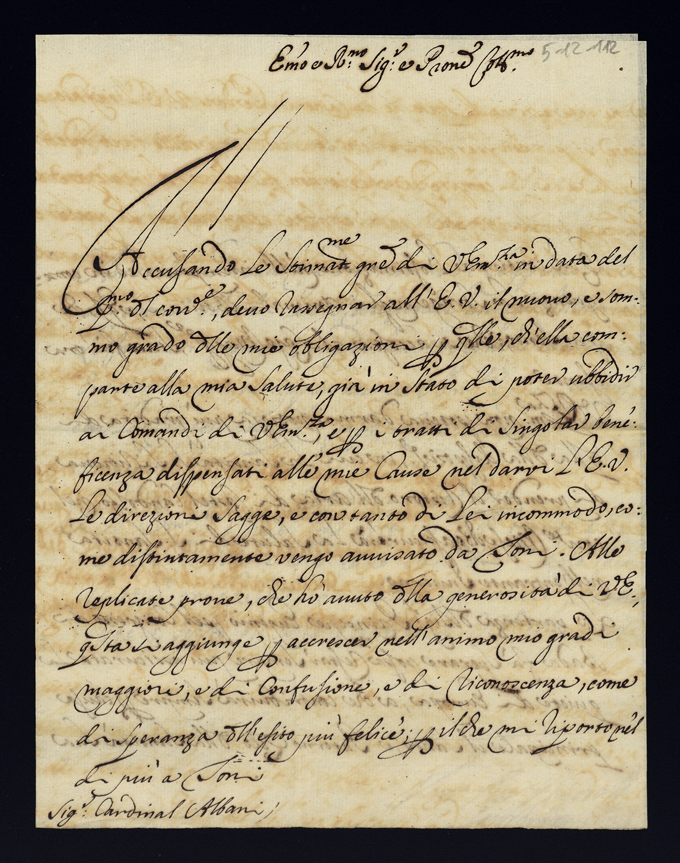 Emo e Rmo Sigr e Prone Colmo
5-12-112
Accusando le Stimatme gre di VEmza in data del
pmo del corre, devo rassegnar all'E.V. il nuovo, e som-
mo grado dlle mie obligazioni p qlle, ch'ella com-
parte alla mia Salute, già in stato di poter ubbidir
ai Comandi di VEmza, e p i tratti di singolar bene-
ficenza dispensati alle mie Cause nel darvi l'E.V.
le direzioni sagge, e con tanto di Lei incommodo, co-
me distintamente vengo avvisato da Toni. Alle
replicate prove, che hò avuto dlla generosità di VE,
qsta si aggiunge p accrescer nell'animo mio gradi
maggiori, e di Confusione, e di riconoscenza, come
di speranza dll'esito più felice; p il che mi riporto nel
di più a Toni
Sigr Cardinal Albani